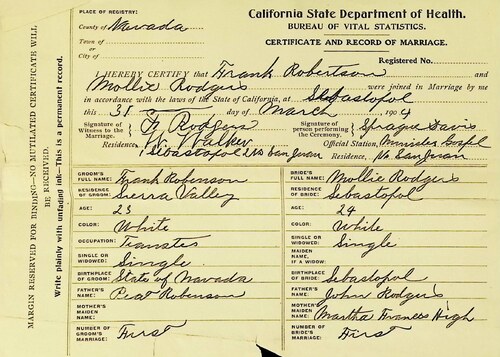 PLACE OF REGISTRY:
County of Navada
Town of
or
City of
California State Department of Health.
BUREAU OF VITAL STATISTICS.
CERTIFICATE AND RECORD OF MARRIAGE.
Registered No.
I HEREBY CERTIFY that Frank Robertson and
Mollie Rodgers were joined in Marriage by me
in accordance with the laws of the State of California, at Sebastopol
this 31 day of March 1904
Signature of Witness to the Marriage, F Rodgers
Signature of person performing the Ceremony, Sprague Davis
W. Walker
Residence, Sebastopol & No San Juan
Official Station, Minister Gospel
Residence, No San Juan
MARGIN RESERVED FOR BINDING—NO MUTILATED CERTIFICATE WILL BE RECEIVED.
Write plainly with unfading ink—This is a permanent record.
GROOM'S FULL NAME: Frank Robinson
RESIDENCE OF GROOM: Sierra Valley
AGE: 23
COLOR: White
OCCUPATION: Teamster
SINGLE OR WIDOWED: Single
BIRTHPLACE OF GROOM: State of Navada
FATHER'S NAME: Peat Robinson
MOTHER'S MAIDEN NAME:
NUMBER OF GROOM'S MARRIAGE: First
BRIDE'S FULL NAME: Mollie Rodgers
RESIDENCE OF BRIDE: Sebastopol
AGE: 24
COLOR: White
SINGLE OR WIDOWED: Single
MAIDEN NAME, IF A WIDOW:
BIRTHPLACE OF BRIDE: Sebastopol
FATHER'S NAME: John Rodgers
MOTHER'S MAIDEN NAME: Martha Frances High
NUMBER OF BRIDE'S MARRIAGE: First